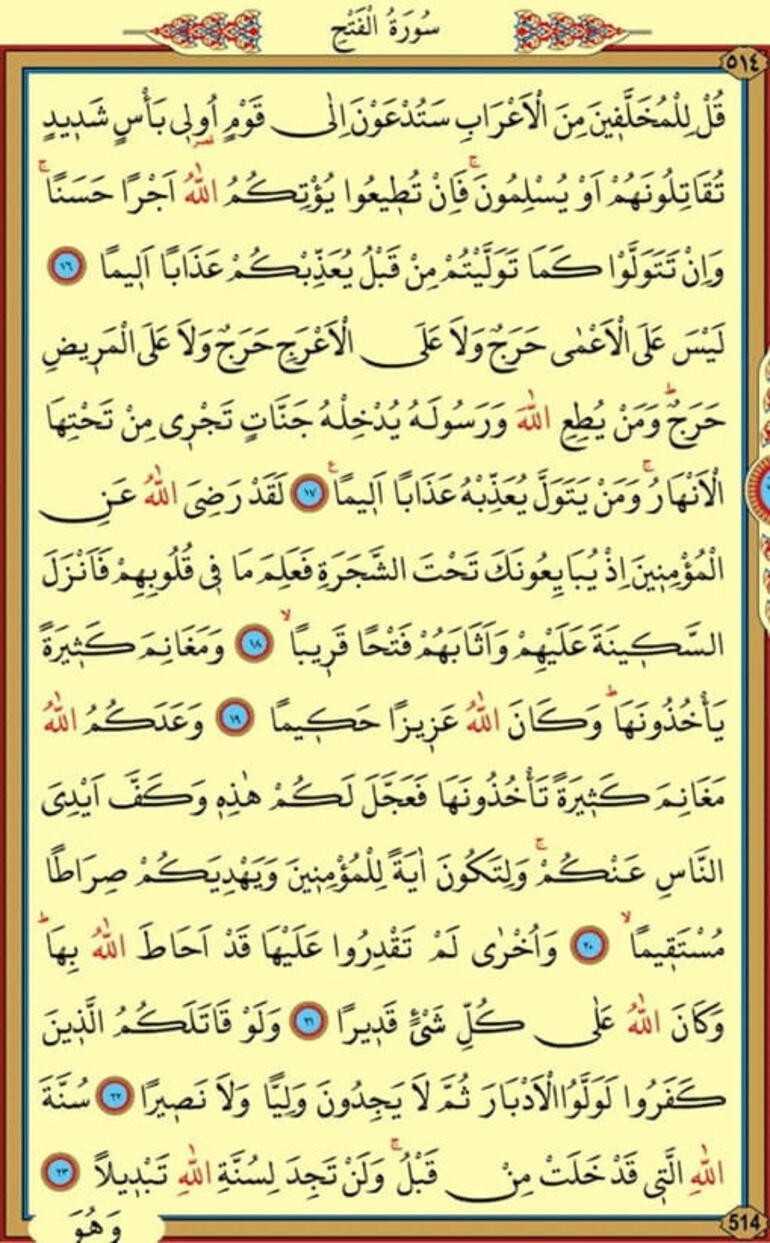 سُورَةُ الْفَتْحِ
٥١٤
قُلْ لِلْمُخَلَّفٖينَ مِنَ الْاَعْرَابِ سَتُدْعَوْنَ اِلٰى قَوْمٍ اُولٖى بَأْسٍ شَدٖيدٍ
تُقَاتِلُونَهُمْ اَوْ يُسْلِمُونَۚ فَاِنْ تُطٖيعُوا يُؤْتِكُمُ اللّٰهُ اَجْرًا حَسَنًاۚ
وَاِنْ تَتَوَلَّوْا كَمَا تَوَلَّيْتُمْ مِنْ قَبْلُ يُعَذِّبْكُمْ عَذَابًا اَلٖيمًا ١٦
لَيْسَ عَلَى الْاَعْمٰى حَرَجٌ وَلَا عَلَى الْاَعْرَجِ حَرَجٌ وَلَا عَلَى الْمَرٖيضِ
حَرَجٌؕ وَمَنْ يُطِعِ اللّٰهَ وَرَسُولَهُ يُدْخِلْهُ جَنَّاتٍ تَجْرٖى مِنْ تَحْتِهَا
الْاَنْهَارُۚ وَمَنْ يَتَوَلَّ يُعَذِّبْهُ عَذَابًا اَلٖيمًاࣖ ١٧ لَقَدْ رَضِىَ اللّٰهُ عَنِ
الْمُؤْمِنٖينَ اِذْ يُبَايِعُونَكَ تَحْتَ الشَّجَرَةِ فَعَلِمَ مَا فٖى قُلُوبِهِمْ فَاَنْزَلَ
السَّكٖينَةَ عَلَيْهِمْ وَاَثَابَهُمْ فَتْحًا قَرٖيبًاۙ ١٨ وَمَغَانِمَ كَثٖيرَةً
يَأْخُذُونَهَاؕ وَكَانَ اللّٰهُ عَزٖيزًا حَكٖيمًا ١٩ وَعَدَكُمُ اللّٰهُ
مَغَانِمَ كَثٖيرَةً تَأْخُذُونَهَا فَعَجَّلَ لَكُمْ هٰذِهٖ وَكَفَّ اَيْدِىَ
النَّاسِ عَنْكُمْۚ وَلِتَكُونَ اٰيَةً لِلْمُؤْمِنٖينَ وَيَهْدِيَكُمْ صِرَاطًا
مُسْتَقٖيمًاۙ ٢٠ وَاُخْرٰى لَمْ تَقْدِرُوا عَلَيْهَا قَدْ اَحَاطَ اللّٰهُ بِهَاؕ
وَكَانَ اللّٰهُ عَلٰى كُلِّ شَیْءٍ قَدٖيرًا ٢١ وَلَوْ قَاتَلَكُمُ الَّذٖينَ
كَفَرُوا لَوَلَّوُا الْاَدْبَارَ ثُمَّ لَا يَجِدُونَ وَلِيًّا وَلَا نَصٖيرًا ٢٢ سُنَّةَ
اللّٰهِ الَّتٖى قَدْ خَلَتْ مِنْ قَبْلُۚ وَلَنْ تَجِدَ لِسُنَّةِ اللّٰهِ تَبْدٖيلًا ٢٣
وَهُوَ
514